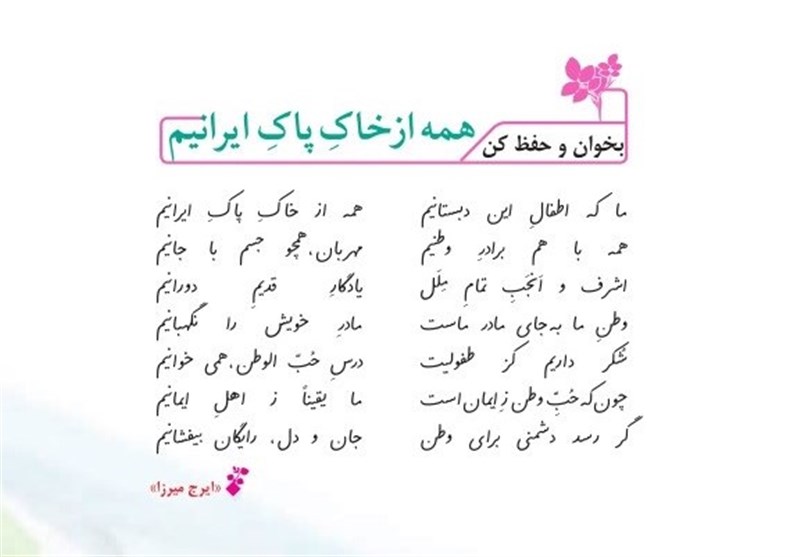 بخوان و حفظ کن
همه از خاکِ پاکِ ایرانیم
ما که اطفالِ این دبستانیم همه از خاکِ پاکِ ایرانیم
همه با هم برادرِ وطنیم مهربان، همچو جسم با جانیم
اشرف و اَنجَبِ تمامِ مِلَل یادگارِ قدیمِ دورانیم
وطنِ ما به‌جای مادر ماست مادرِ خویش را نگهبانیم
شکر داریم کز طفولیت درسِ حُبّ الوطن، همی خوانیم
چون‌که حُبِّ وطن زِ ایمان است ما یقیناً ز اهلِ ایمانیم
گر رسد دشمنی برای وطن جان و دل، رایگان بیفشانیم
«ایرج میرزا»